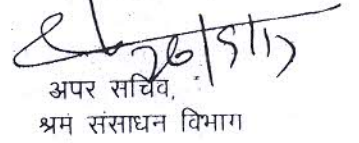 26/5/17
अपर सचिव,
श्रम संसाधन विभाग